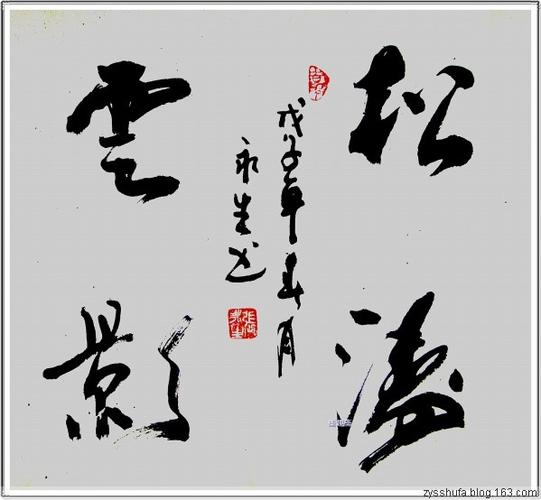 松濤
戊子年春月
永生书
雲影
zysshufa.blog.163.com